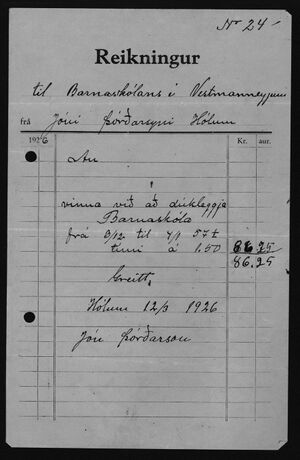 No 24
Reikningur
til Barnaskólans í Vestmanneyjum
frá Jóni Þórðarsyni Hólum
1926 Kr. aur.
An
vinna við að dúkleggja
Barnaskóla
frá 3/12 til 4/1 57½
tími á 1.50 86.25
86.25
Greitt,
Hólum 12/3 1926
Jón Þórðarson